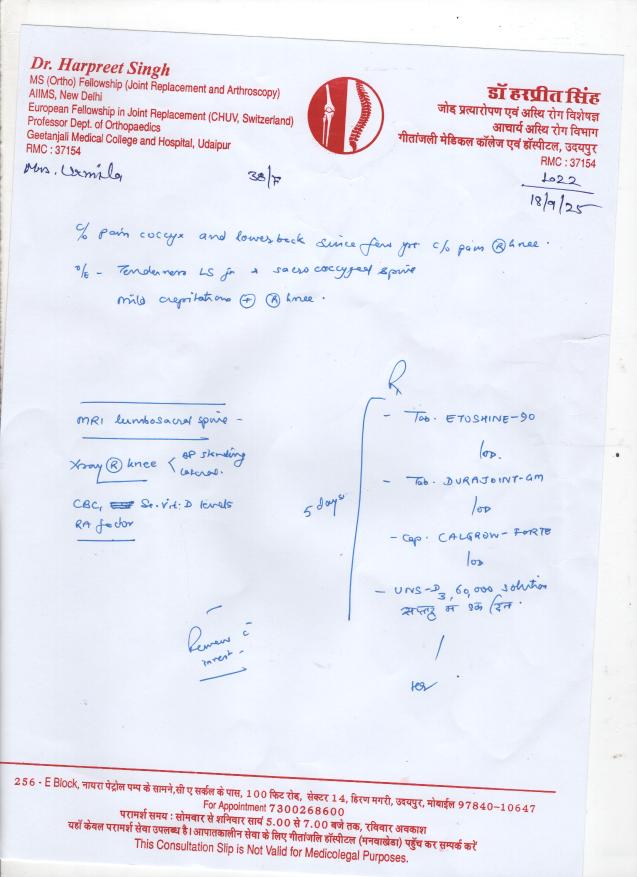 Dr. Harpreet Singh
MS (Ortho) Fellowship (Joint Replacement and Arthroscopy)
AIIMS, New Delhi
European Fellowship in Joint Replacement (CHUV, Switzerland)
Professor Dept. of Orthopaedics
Geetanjali Medical College and Hospital, Udaipur
RMC : 37154
डॉ हरप्रीत सिंह
जोड़ प्रत्यारोपण एवं अस्थि रोग विशेषज्ञ
आचार्य अस्थि रोग विभाग
गीतांजली मेडिकल कॉलेज एवं हॉस्पीटल, उदयपुर
RMC : 37154
Mrs. Urmila 38/F
1022
18/9/25
c/o pain coccyx and lower back since few c/o pain R knee.
O/E - Tenderness LS jn + sacrococcygeal spine
mild crepitations + R knee.
MRI lumbosacral spine -
Xray R knee < AP standing
lateral.
CBC, Sr. Vit. D levels
RA factor
Review c̄
invest -
Rx
5 days
- Tab. ETOSHINE-90
1 OD.
- Tab. DURAJOINT-GM
1 OD
- Cap. CALGROW-FORTE
1 OD
- UNS-D3, 60,000 solution
सप्ताह में एक दिन.
256 - E Block, नायरा पेट्रोल पम्प के सामने, सी ए सर्कल के पास, 100 फिट रोड, सेक्टर 14, हिरण मगरी, उदयपुर, मोबाईल 97840-10647
For Appointment 7300268600
परामर्श समय : सोमवार से शनिवार सायं 5.00 से 7.00 बजे तक, रविवार अवकाश
यहाँ केवल परामर्श सेवा उपलब्ध है। आपातकालीन सेवा के लिए गीतांजलि हॉस्पीटल (मनवाखेडा) पहुँच कर सम्पर्क करें
This Consultation Slip is Not Valid for Medicolegal Purposes.